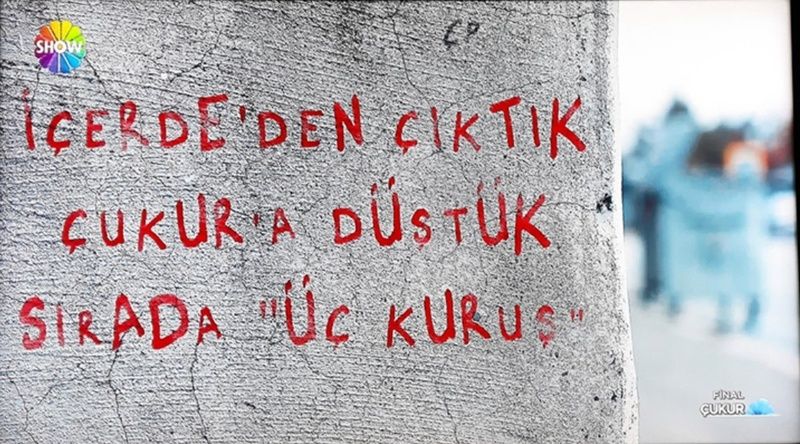 SHOW
İÇERDE'DEN ÇIKTIK
ÇUKUR'A DÜŞTÜK
SIRADA "ÜÇ KURUŞ"
FİNAL
ÇUKUR